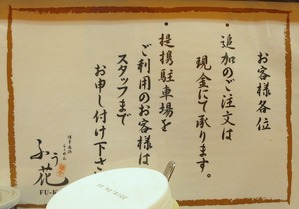 お客様各位
・追加のご注文は
現金にて承ります。
・提携駐車場を
ご利用のお客様は
スタッフまで
お申し付け下さ
ふぅ花
FU-